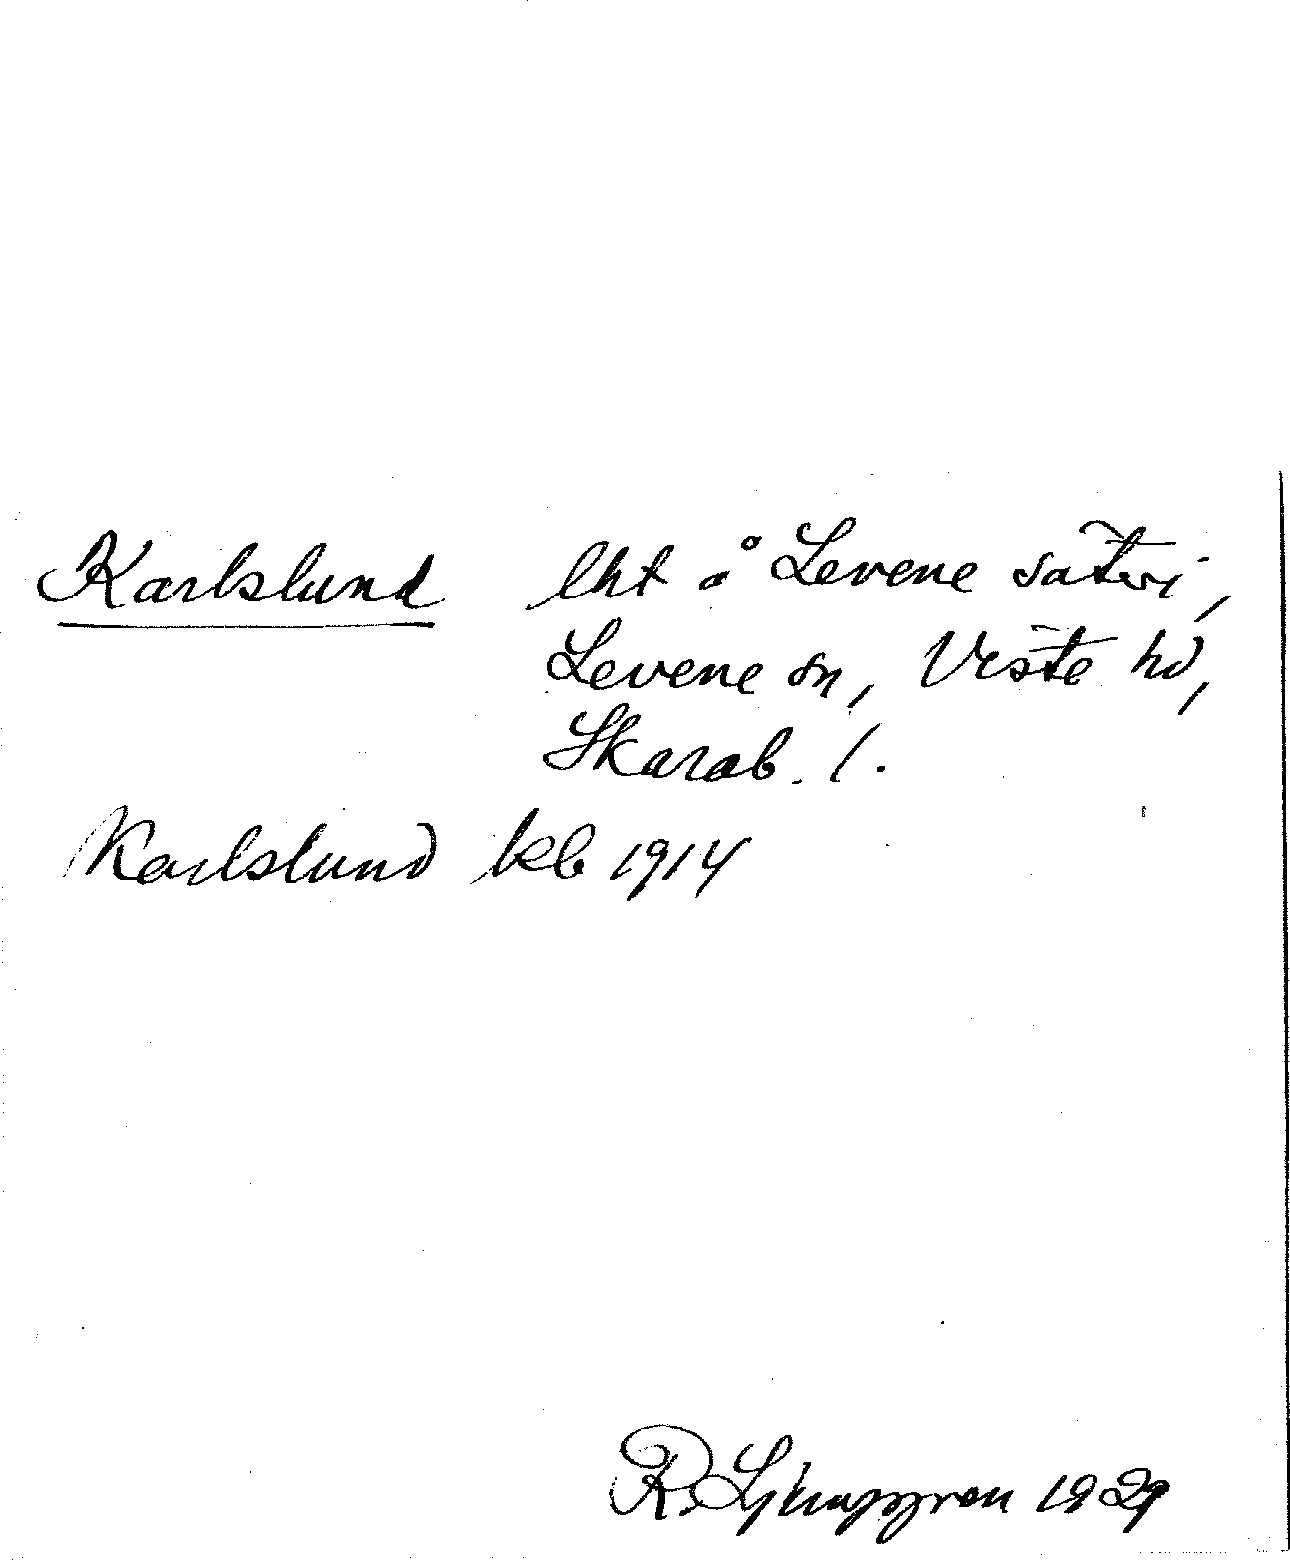 Karlslund lht å Levene säteri,
Levene sn, Viste hd,
Skarab. l.
Karlslund kb 1914
R. Ljunggren 1929